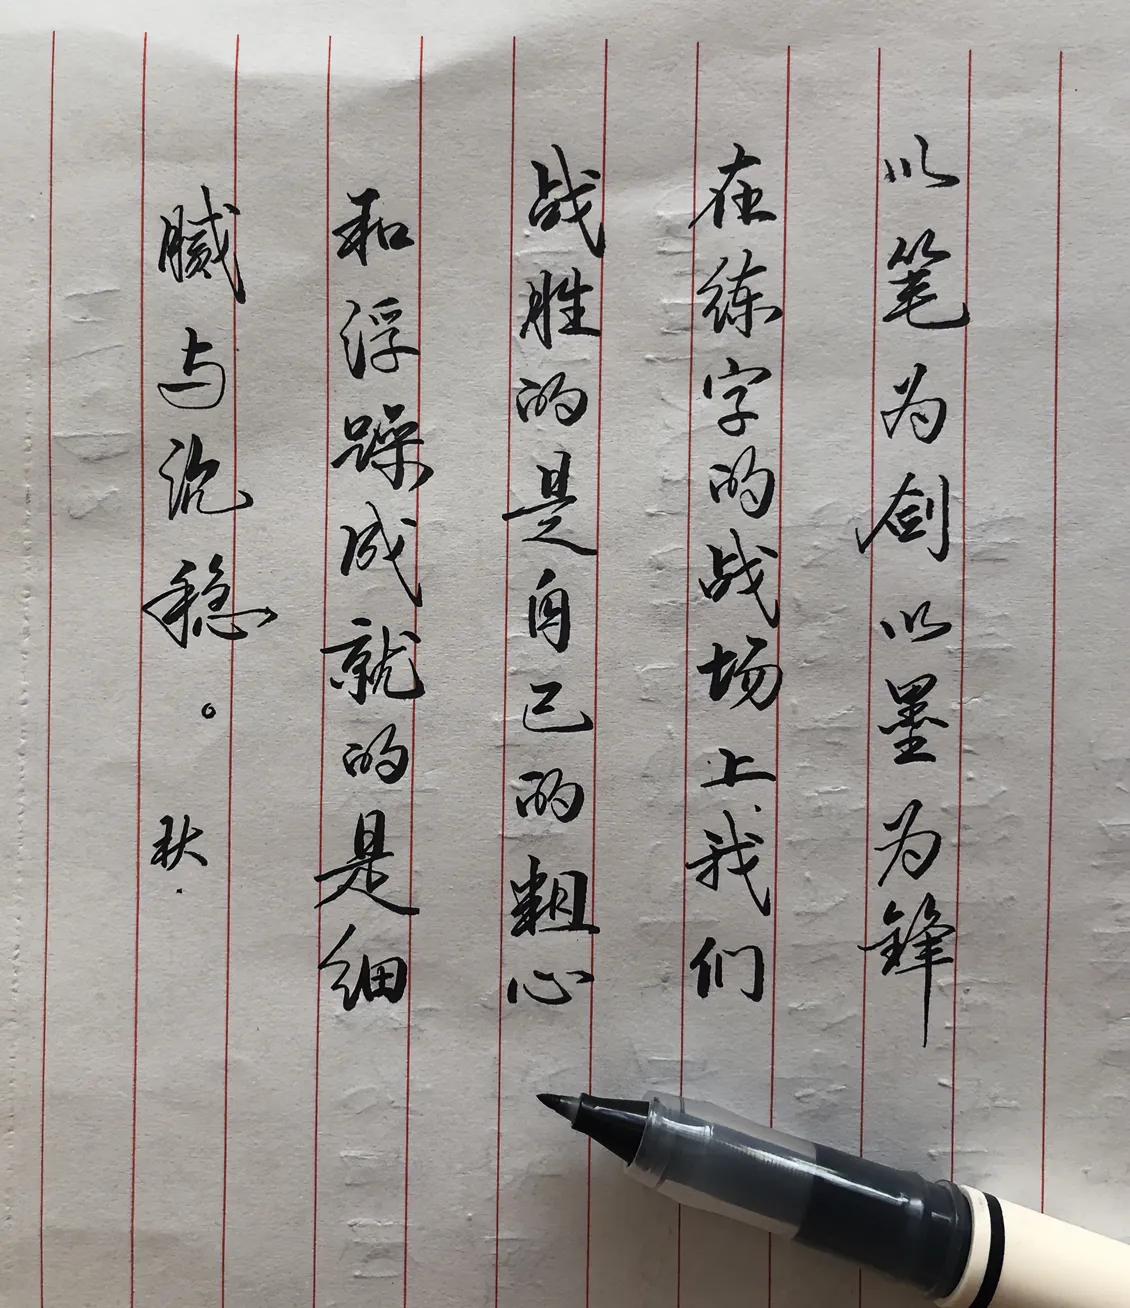 以笔为剑以墨为锋
在练字的战场上我们
战胜的是自己的粗心
和浮躁成就的是细
腻与沉稳。秋.